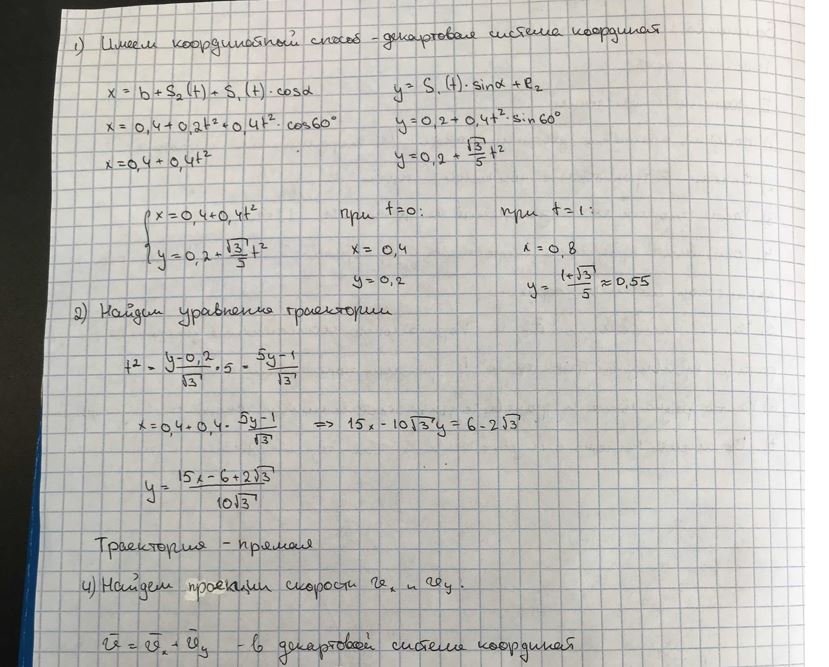 1) Имеем координатный способ - декартовая система координат
x = b + S₂(t) + S₁(t)·cosα
y = S₁(t)·sinα + l₂
x = 0,4 + 0,2t² + 0,4t²·cos60°
y = 0,2 + 0,4t²·sin60°
x = 0,4 + 0,4t²
y = 0,2 + √3/5 t²
{ x = 0,4 + 0,4t²
y = 0,2 + √3/5 t²
при t=0:
x = 0,4
y = 0,2
при t=1:
x = 0,8
y = (1+√3)/5 ≈ 0,55
2) Найдем уравнение траектории
t² = (y-0,2)/√3 · 5 = (5y-1)/√3
x = 0,4 + 0,4 · (5y-1)/√3 => 15x - 10√3 y = 6 - 2√3
y = (15x - 6 + 2√3)/(10√3)
Траектория - прямая
4) Найдем проекции скорости vₓ и v_y.
v̄ = v̄ₓ + v̄_y - в декартовой системе координат